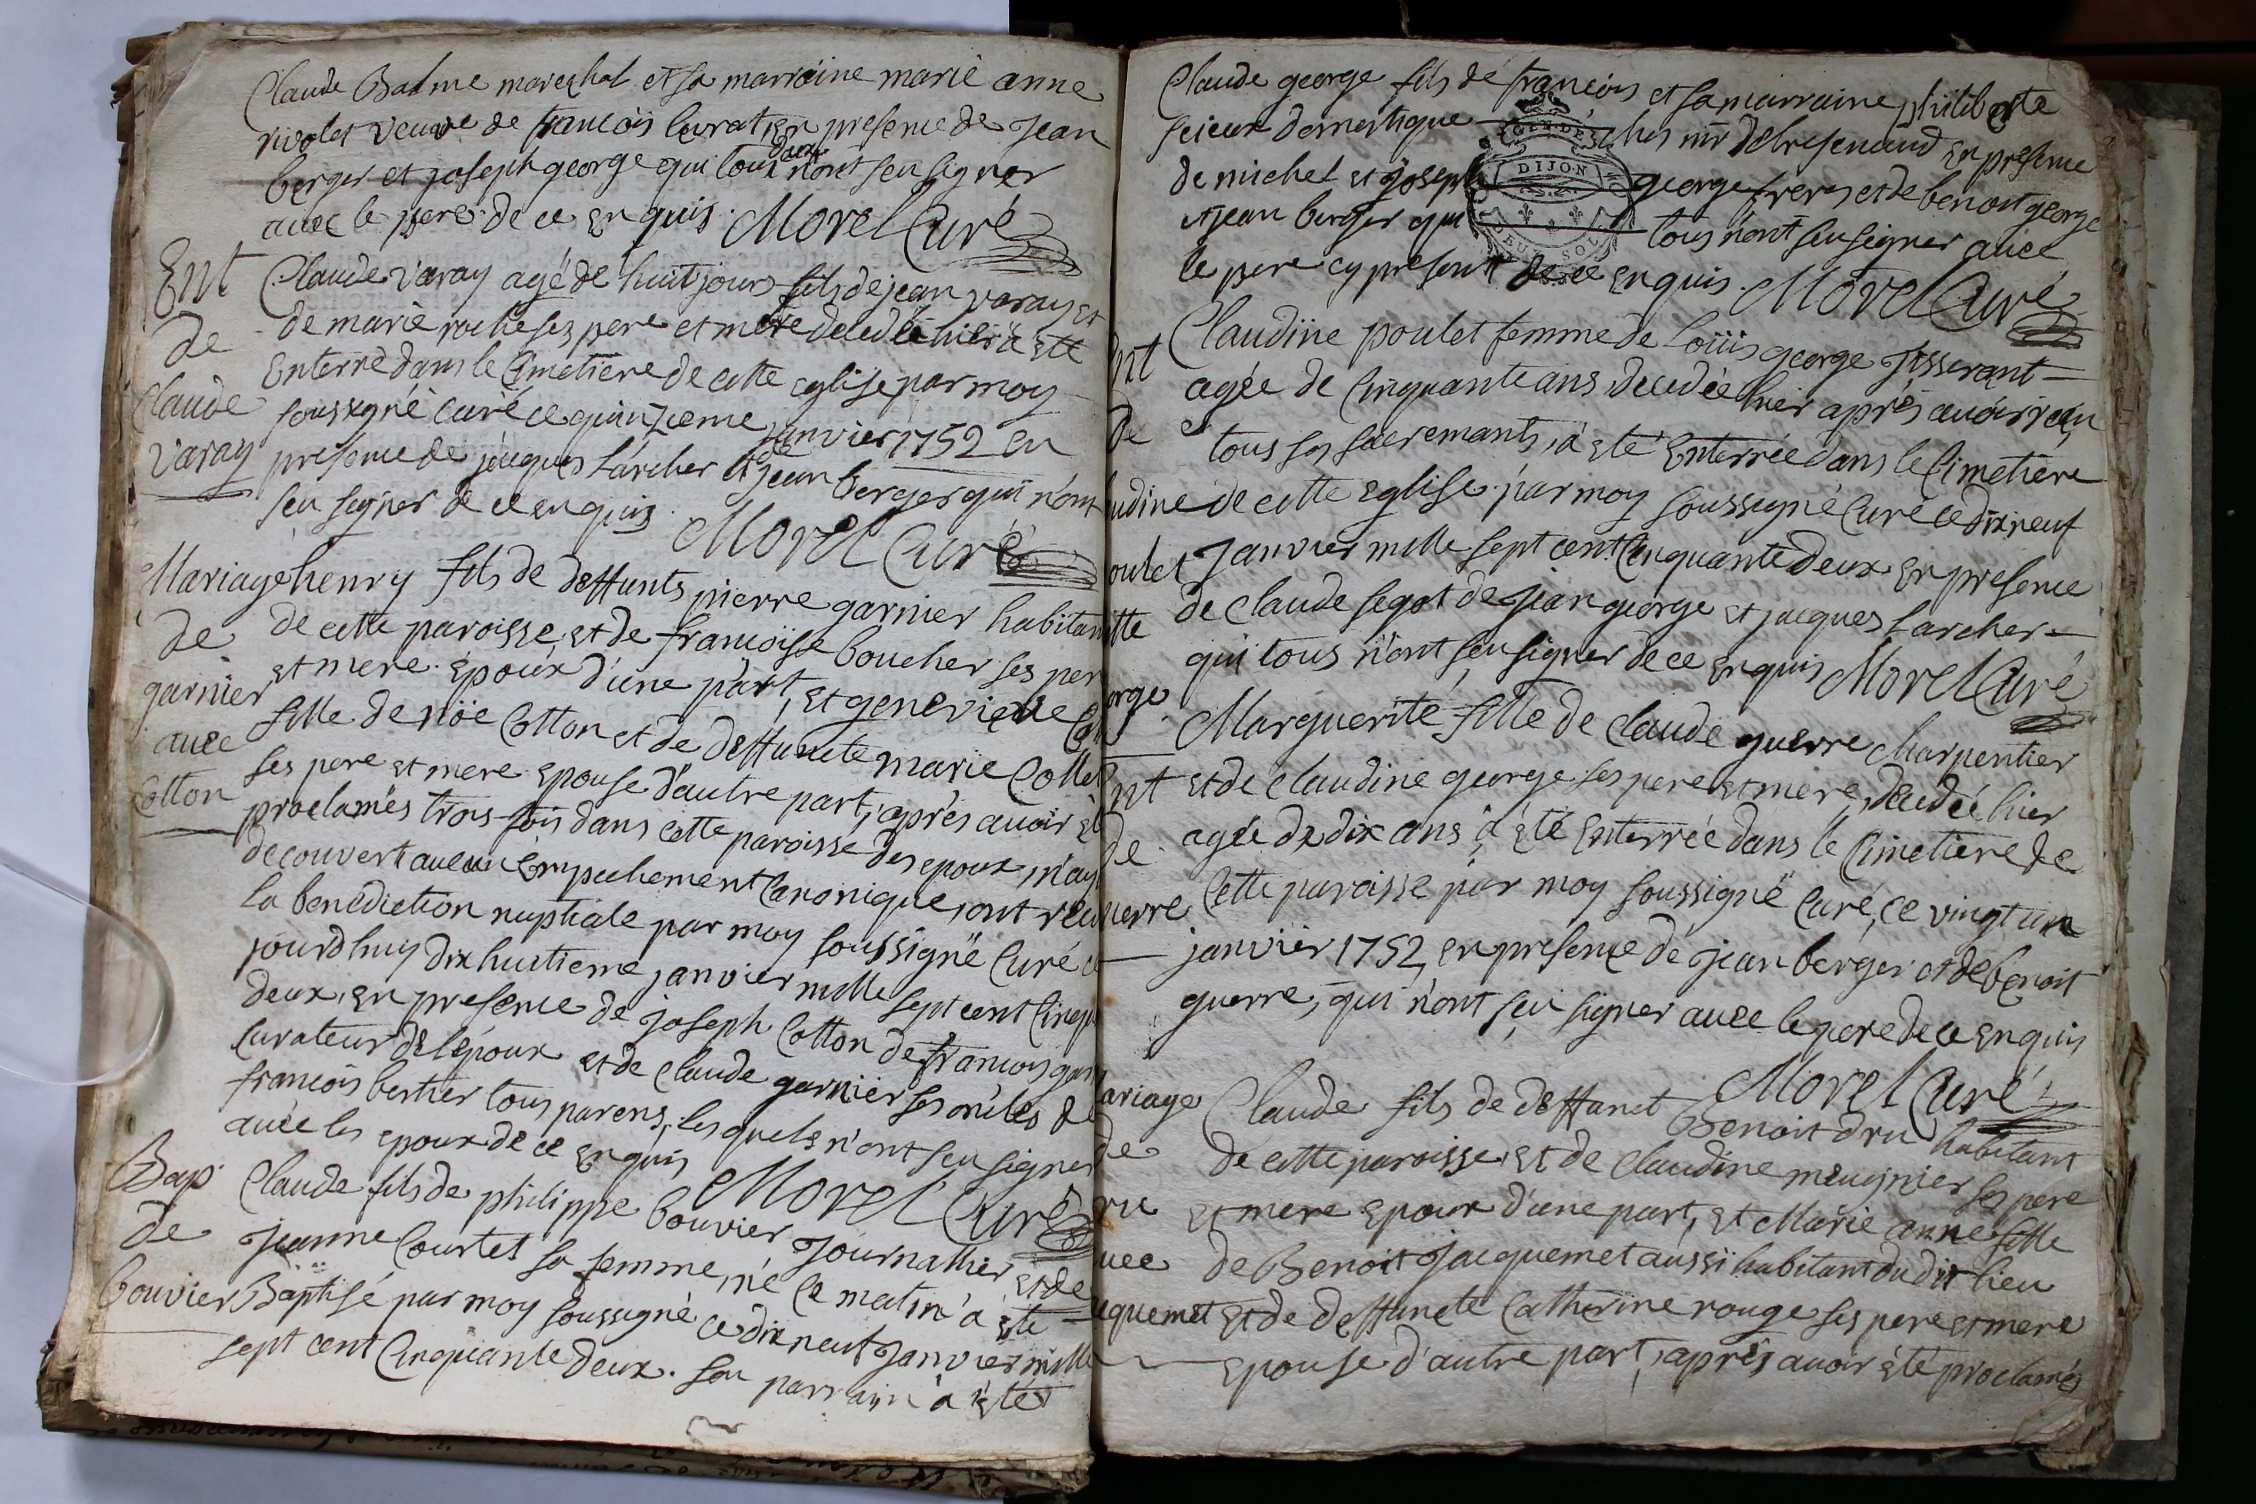 Claude Balme mareschal et sa marraine marie anne
rivolet veuve de francois curat, En presence de Jean
berger et joseph george qui tous deux n'ont seu signer
avec le pere de ce enquis. Morel Curé
Ent
de
Claude
Varay
Claude Varay agé de huit jours fils de jean varay et
de marie roche ses pere et mere decedé hier a eté
Enterré dans le Cimetiere de cette eglise par moy
soussigné curé ce quinzieme janvier 1752 en
presence de jacques Larcher et de jean berger qui n'ont
seu signer de ce enquis. Morel Curé
Mariage
de
garnier
avec
Cotton
henry fils de deffunts pierre garnier habitan
de cette paroisse et de francoise boucher ses per
et mere Epoux d'une part, et genevieve Co
fille de nöe Cotton et de deffuncte marie Colle
ses pere et mere Epouse d'autre part, aprés avoir et
proclamés trois fois dans cette paroisse des epoux, n'ay
decouvert aucun Empechement Canonique, ont reeu
la benediction nuptiale par moy soussigné Curé ce
jourdhuy dix huitieme janvier mille sept cent Cinqu
deux, en presence de joseph Cotton de francois gar
Curateur de l'époux et de Claude garnier ses oncles de
francois berthier tous parens, les quels n'ont seu signer
avec les epoux de ce enquis Morel Curé
Bap
de
bouvier
Claude fils de philippe bouvier Journallier et de
Jeanne Courtet sa femme, né ce matin a eté
Baptisé par moy soussigné ce dix neuf Janvier mille
sept cent Cinquante deux. son parrain a été
Claude george fils de francois et sa marraine philiberte
seieux domestique ches mr Delresenaud En presence
de michel et joseph george freres et de benoit george
et jean berger qui tous n'ont seu signer avec
le pere cy present de ce enquis. Morel Curé
DIJON
DEUX SOLS
Ent
de
udine
oulet
tte
orge
Claudine poulet femme de Loüis george Jsserant
agée de Cinquante ans decedée hier aprés avoir reeu
tous ses sacremants, a eté Enterrée dans le Cimetiere
de cette Eglise par moy soussigné Curé ce dix neuf
Janvier mille sept cent Cinquante deux En presence
de Claude segot de Jean george et jacques Larcher
qui tous n'ont seu signer de ce enquis Morel Curé
Ent
de
uerre
Marguerite fille de Claude guerre charpentier
et de Claudine george ses pere et mere, decedée hier
agée de dix ans, a été Enterrée dans le Cimetiere de
Cette paroisse par moy soussigné Curé, ce vingt un
janvier 1752 en presence de Jean berger et de benoit
guerre, qui n'ont seu signer avec le pere de ce enquis
Morel Curé
ariage
de
ru
vec
cquemet
Claude fils de deffunct Benoit dru habitant
de cette paroisse et de Claudine meugnier ses pere
et mere Epoux d'une part, et Marie anne fille
de Benoit Jacquemet aussi habitant dudit lieu
et de deffuncte Catherine rouge ses pere et mere
Epouse d'autre part, aprés avoir été proclamés